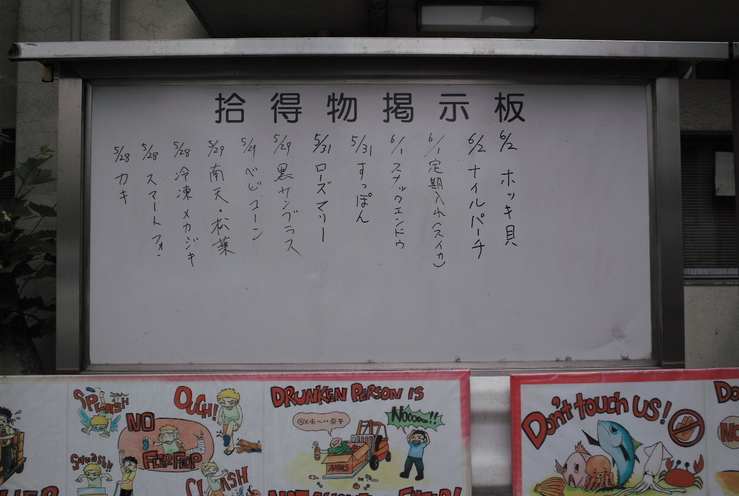 拾得物掲示板
6/2 ホッキ貝
6/2 ナイルパーチ
6/1 定期入れ(スイカ)
6/1 スナックエンドウ
5/31 すっぽん
5/31 ローズマリー
5/29 黒サングラス
5/29 ベビコーン
5/29 南天・松葉
5/28 冷凍メカジキ
5/28 スマートフォン
5/28 カキ
SPLASH!
OUCH!
NO
FLIP-FLOP
SQUASH!
DRUNKEN PERSON IS
Nooooo!!
Don't touch us!